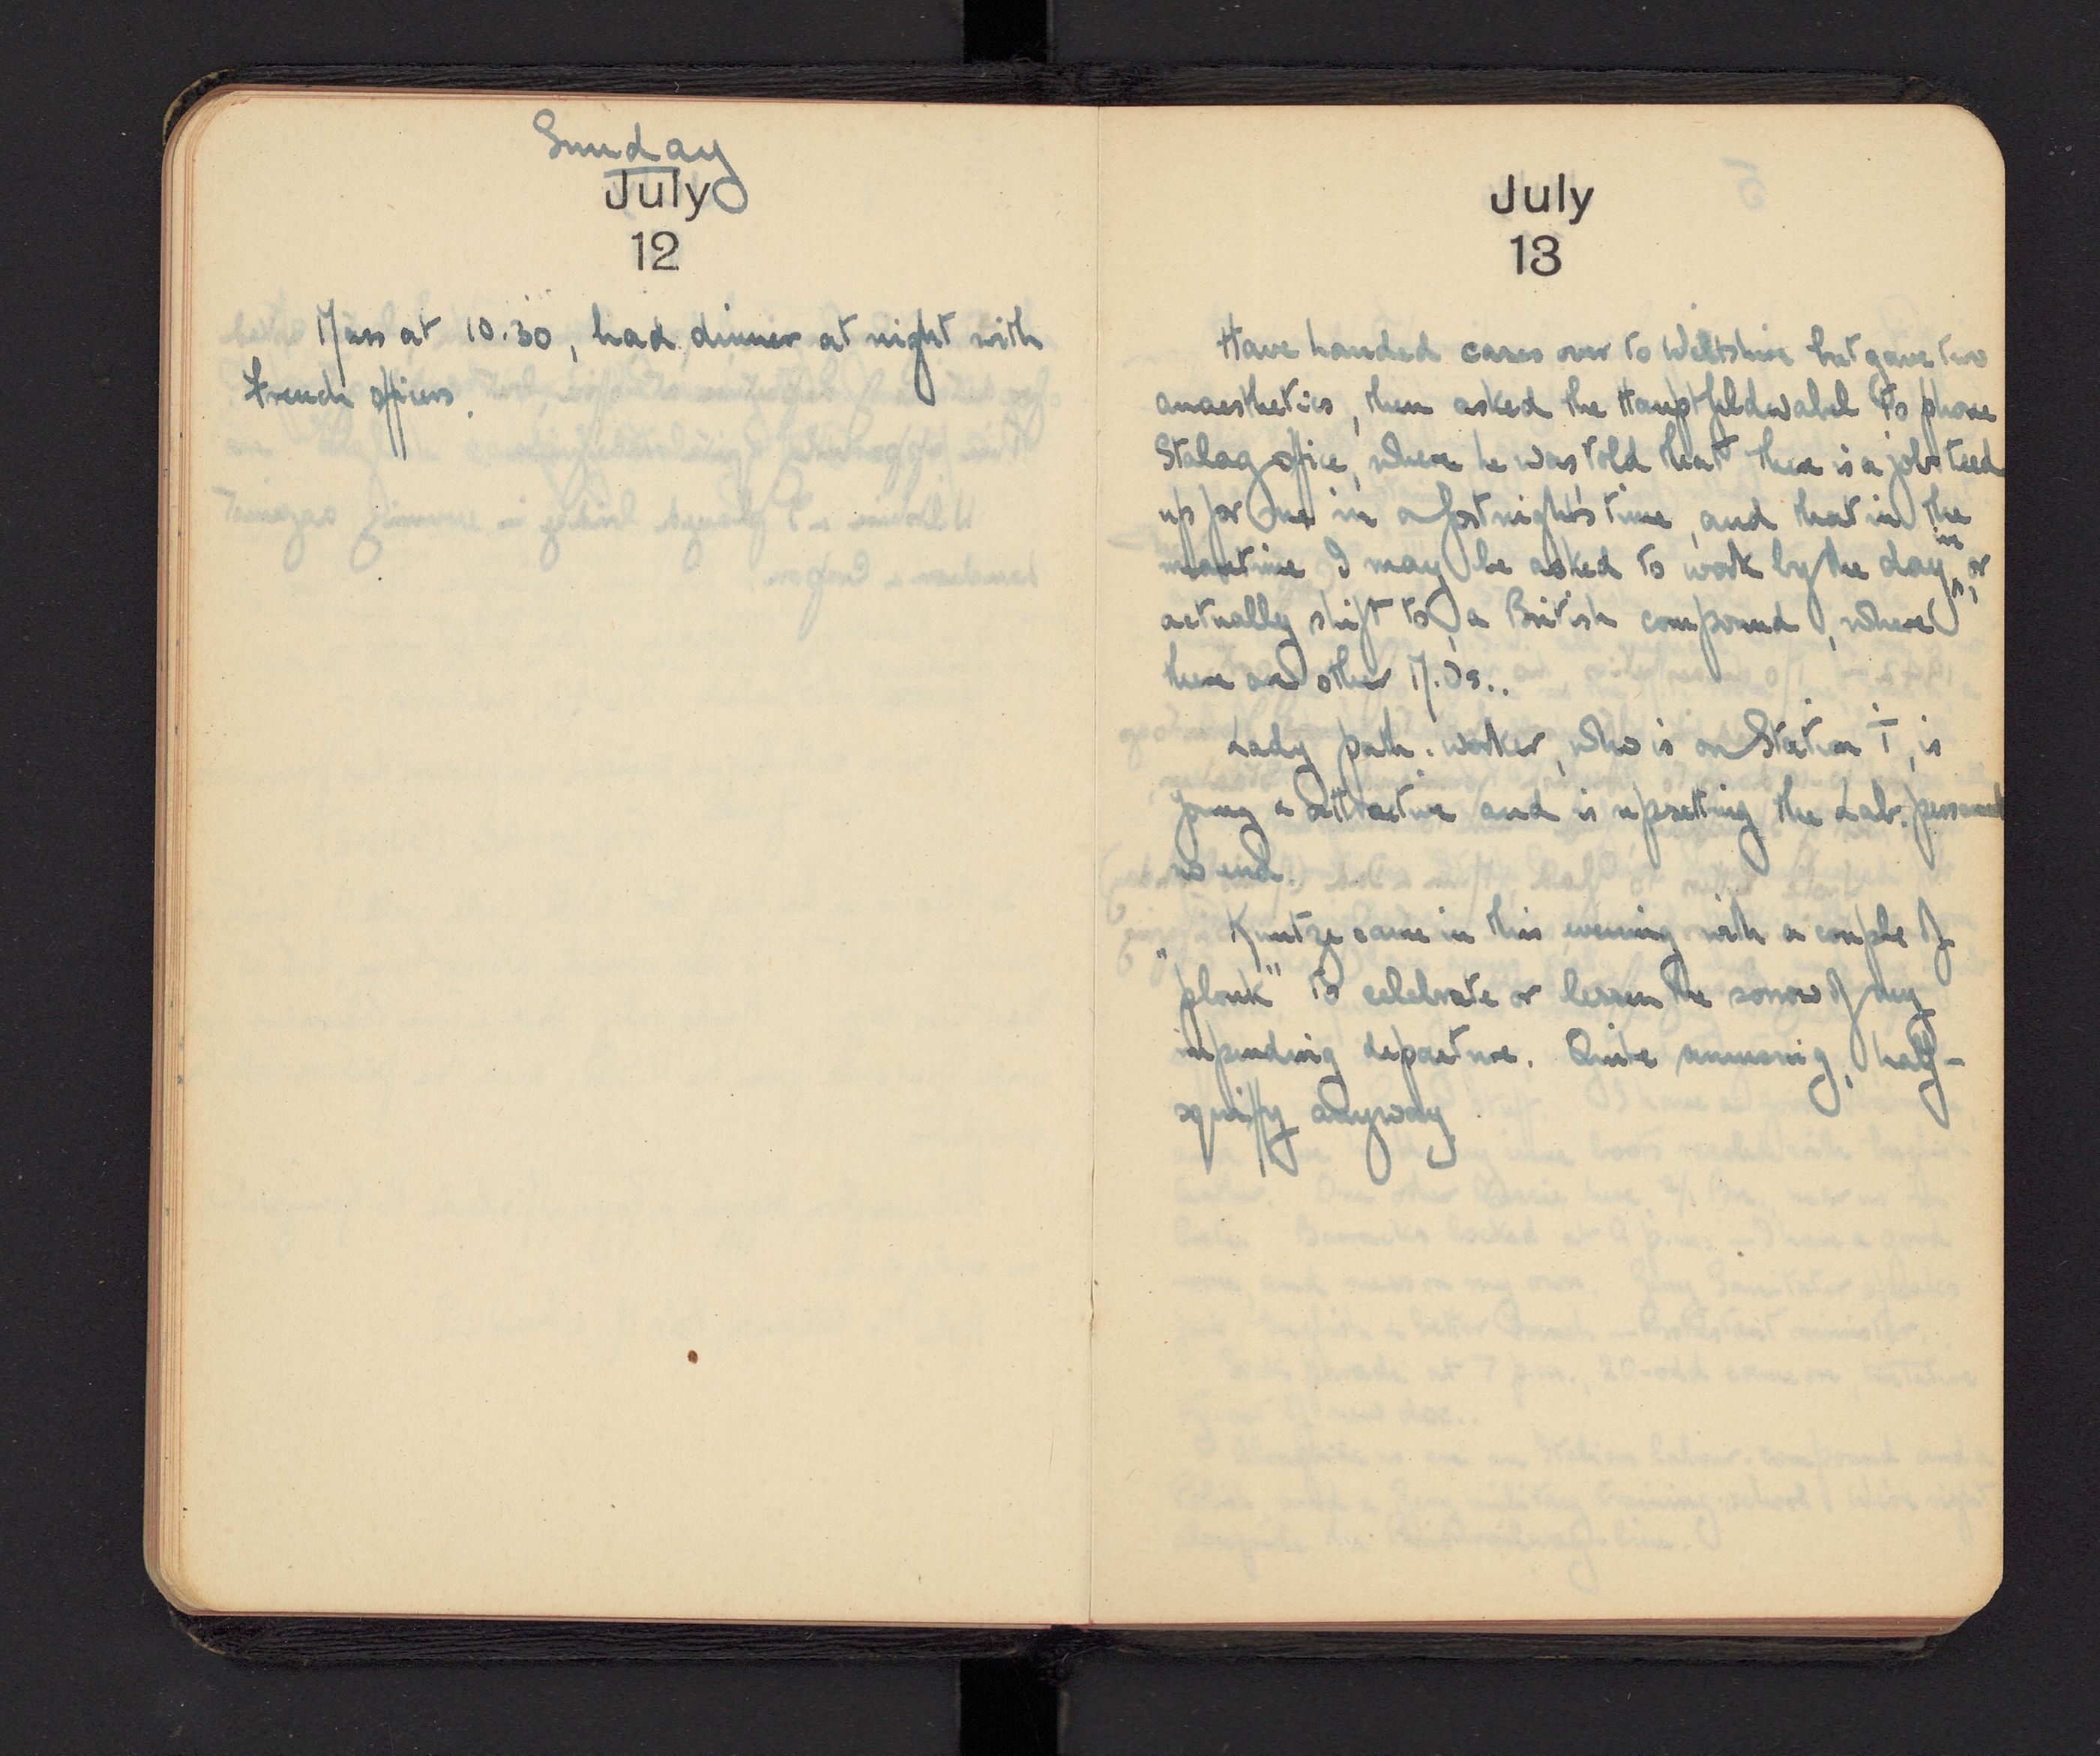 Sunday
July
12
Mass at 10.30, had dinner at night with
French officers.
July
13
Have handed cases over to Wiltshire but gave two
anaesthetics, then asked the Hauptfeldwabel to phone
Stalag office, where he was told that there is a job teed
up for me in a fortnight's time, and that in the
meantime I may be asked to work by the day "in", or
actually shift to, a British compound, where
there are other M.Os..
Lady path. worker, who is on Station I, is
young & attractive and is upsetting the Lab. personnel
no end.
Kuntze came in this evening with a couple of
"plonk" to celebrate or lessen the sorrow of my
impending departure. Quite amusing, half-
squiffy anyway.